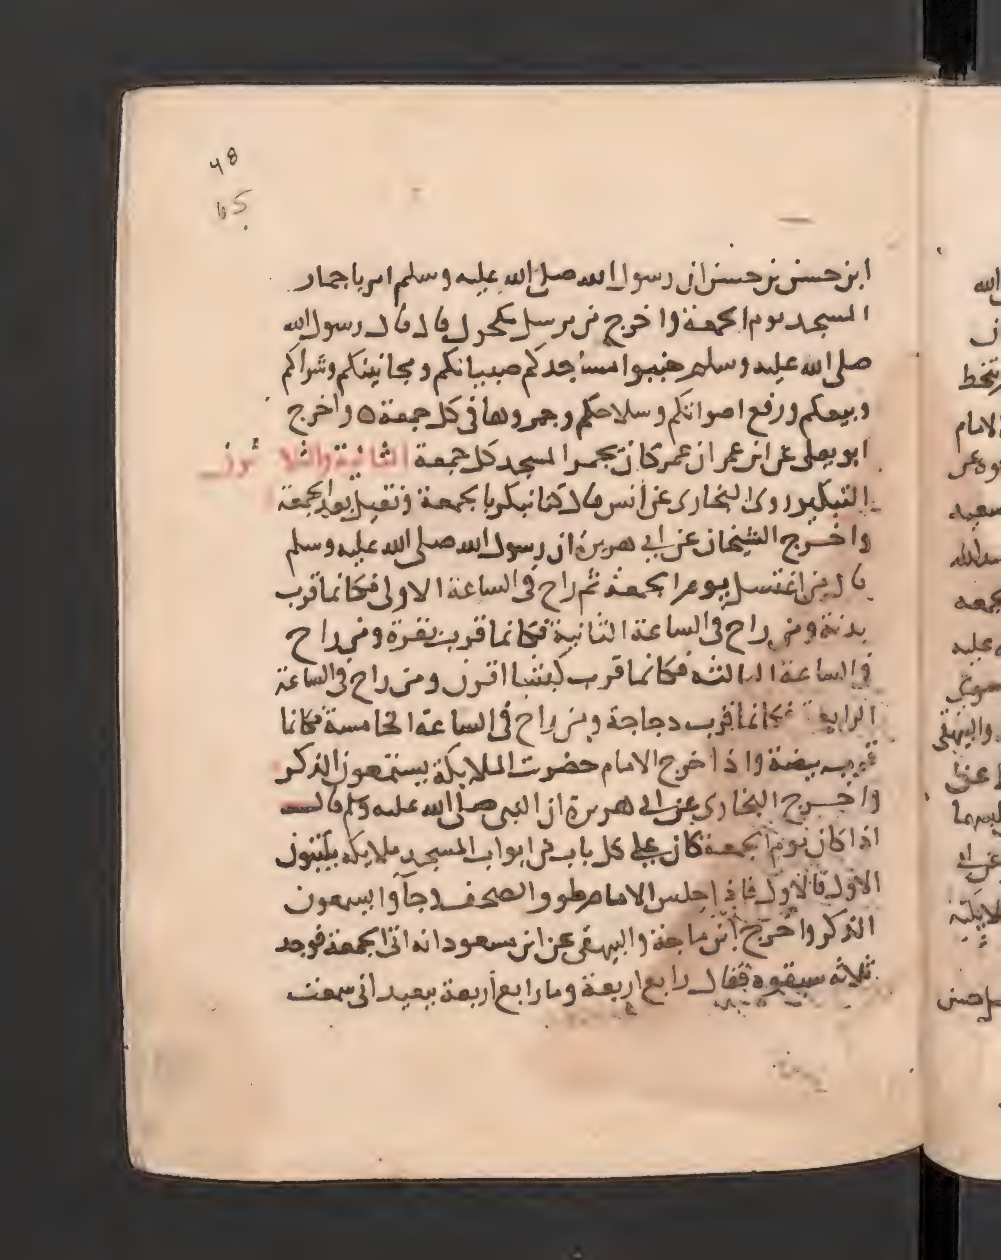 ابن حسن بن حسن ان رسول الله صلى الله عليه وسلم امر باجمار
المسجد يوم الجمعة واخرج من مرسل مكحول قال قال رسول الله
صلى الله عليه وسلم جنبوا مساجدكم صبيانكم ومجانينكم وشراكم
وبيعكم ورفع اصواتكم وسلاحكم وجمروها في كل جمعة ٥ واخرج
ابو يعلى عن ابن عمر ان عمر كان يجمر المسجد كل جمعة الثانية والثلاثون
التبكير روى البخاري عن انس قال كنا نبكر بالجمعة ونقيل بعد الجمعة
واخرج الشيخان عن ابي هريرة ان رسول الله صلى الله عليه وسلم
قال من اغتسل يوم الجمعة ثم راح في الساعة الاولى فكانما قرب
بدنة ومن راح في الساعة الثانية فكانما قرب بقرة ومن راح
في الساعة الثالثه فكانما قرب كبشا اقرن ومن راح في الساعة
الرابعة فكانما قرب دجاجة ومن راح في الساعة الخامسة فكانما
قرب بيضة واذا خرج الامام حضرت الملايكة يستمعون الذكر
واخرج البخاري عن ابي هريرة ان النبي صلى الله عليه وسلم قال
اذا كان يوم الجمعة كان على كل باب من ابواب المسجد ملايكه يكتبون
الاول فالاول فاذا جلس الامام طووا الصحف وجآوا يسمعون
الذكر واخرج ابن ماجة والبيهقي عن ابن مسعود انه اتى الجمعة فوجد
ثلاثه سبقوه فقال رابع اربعة وما رابع اربعة ببعيد اني سمعت